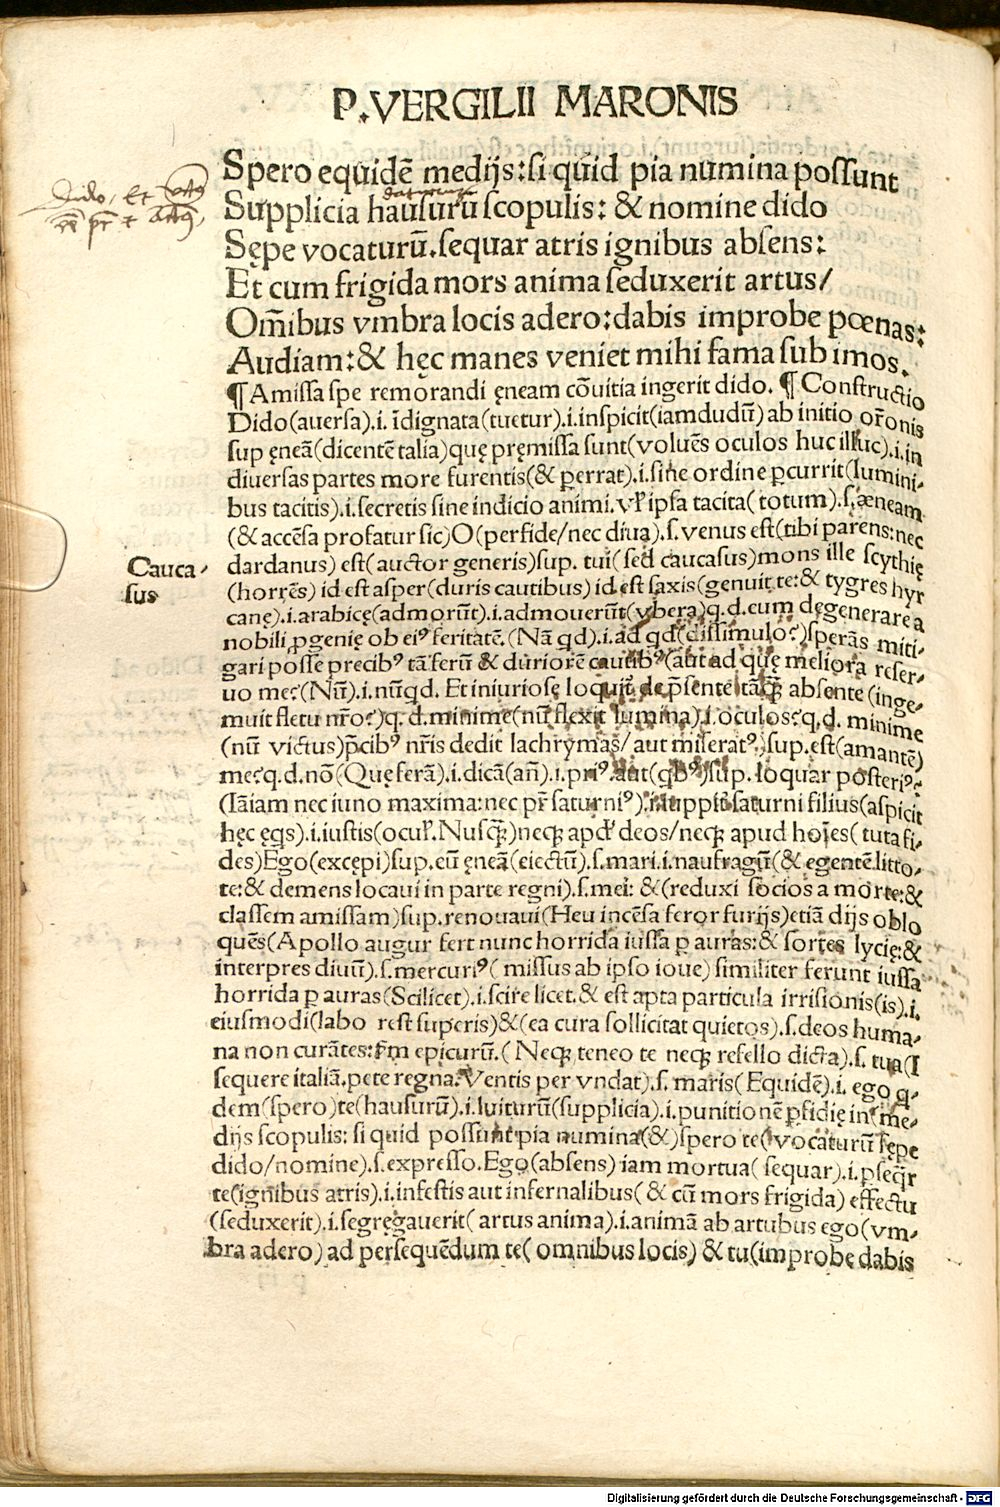 P. VERGILII MARONIS
Spero equidē medijs: si quid pia numina possunt
Supplicia hausurū scopulis: & nomine dido
Sępe vocaturū. sequar atris ignibus absens:
Et cum frigida mors anima seduxerit artus/
Om̄ibus vmbra locis adero: dabis improbe pœnas:
Audiam: & hęc manes veniet mihi fama sub imos.
¶ Amissa spe remorandi ęneam cōuitia ingerit dido. ¶ Constructio
Dido (auersa) .i. īdignata (tuetur) .i. inspicit (iamdudū) ab initio or̄onis
sup ęneā (dicentē talia) quę pręmissa sunt (voluēs oculos huc illuc) .i. in
diuersas partes more furentis (& perrat) .i. sine ordine pcurrit (lumini-
bus tacitis) .i. secretis sine indicio animi. vl' ipsa tacita (totum) .s. æneam
(& accēsa profatur sic) O (perfide/nec diua) .s. venus est (tibi parens: nec
Cauca-
sus
dardanus) est (auctor generis) sup. tui (sed caucasus) mons ille scythię
(horrēs) id est asper (duris cautibus) id est saxis (genuit te: & tygres hyr
canę) .i. arabicę (admorūt) .i. admouerūt (vbera) q. d. eum degenerare a
nobili pgenię ob ei⁹ feritatē. (Nā qd) .i. ad qd (dissimulo?) sperās miti-
gari posse precib⁹ tā ferū & duriorē cautib⁹ (aut ad quę meliora reser-
uo me? (Nū) .i. nūqd. Et iniuriosę loquit̄ de p̄sente tāꝙ absente (inge-
muit fletu nr̄o?) q. d. minime (nū flexit lumina) .i. oculos? q. d. minime
(nū victus) p̄cib⁹ nr̄is dedit lachrymas/ aut miserat⁹ sup. est (amantē)
me? q. d. nō (Quę ferā) .i. dicā (añ) .i. pri⁹. aut (qb⁹) sup. loquar posteri⁹?
(Iāiam nec iuno maxima: nec pr̄ saturni⁹) .i. iuppiter saturni filius (aspicit
hęc ęqs) .i. iustis (ocul'. Nusꝙ) neqꝫ apd' deos/ neqꝫ apud hoīes (tuta fi-
des) Ego (excępi) sup. eū ęneā (eiectū) .s. mari .i. naufragū (& egentē litto-
te: & demens locaui in parte regni) .s. mei: & (reduxi socios a morte: &
classem amissam) sup. renouaui (Heu incēsa feror furijs) etiā dijs oblo
quēs (Apollo augur fert nunc horrida iussa p auras: & sortes lycię: &
interpres diuū) .s. mercuri⁹ (missus ab ipso ioue) similiter ferunt iussa
horrida p auras (Scilicet) .i. scire licet. & est apta particula irrisionis (is) .i.
eiusmodi (labo rest superis) & (ea cura sollicitat quietos) .s. deos huma-
na non curātes: fm epicurū. (Neqꝫ teneo te neqꝫ refello dicta) .s. tua (I
sequere italiā. pete regna. Ventis per vndat) .s. maris (Equidē) .i. ego q-
dem (spero) te (hausurū) .i. luiturū (supplicia) .i. punitionē pfidię in (me-
dijs scopulis: si quid possunt pia numina (&) spero te (vocaturū sępe
dido/nomine) .s. expresso. Ego (absens) iam mortua (sequar) .i. pseqr̄
te (ignibus atris) .i. infestis aut infernalibus (& cū mors frigida) effectu
(seduxerit) .i. segręgauerit (artus anima) .i. animā ab artubus ego (vm-
bra adero) ad persequēdum te (omnibus locis) & tu (improbe dabis
Digitalisierung gefördert durch die Deutsche Forschungsgemeinschaft - DFG